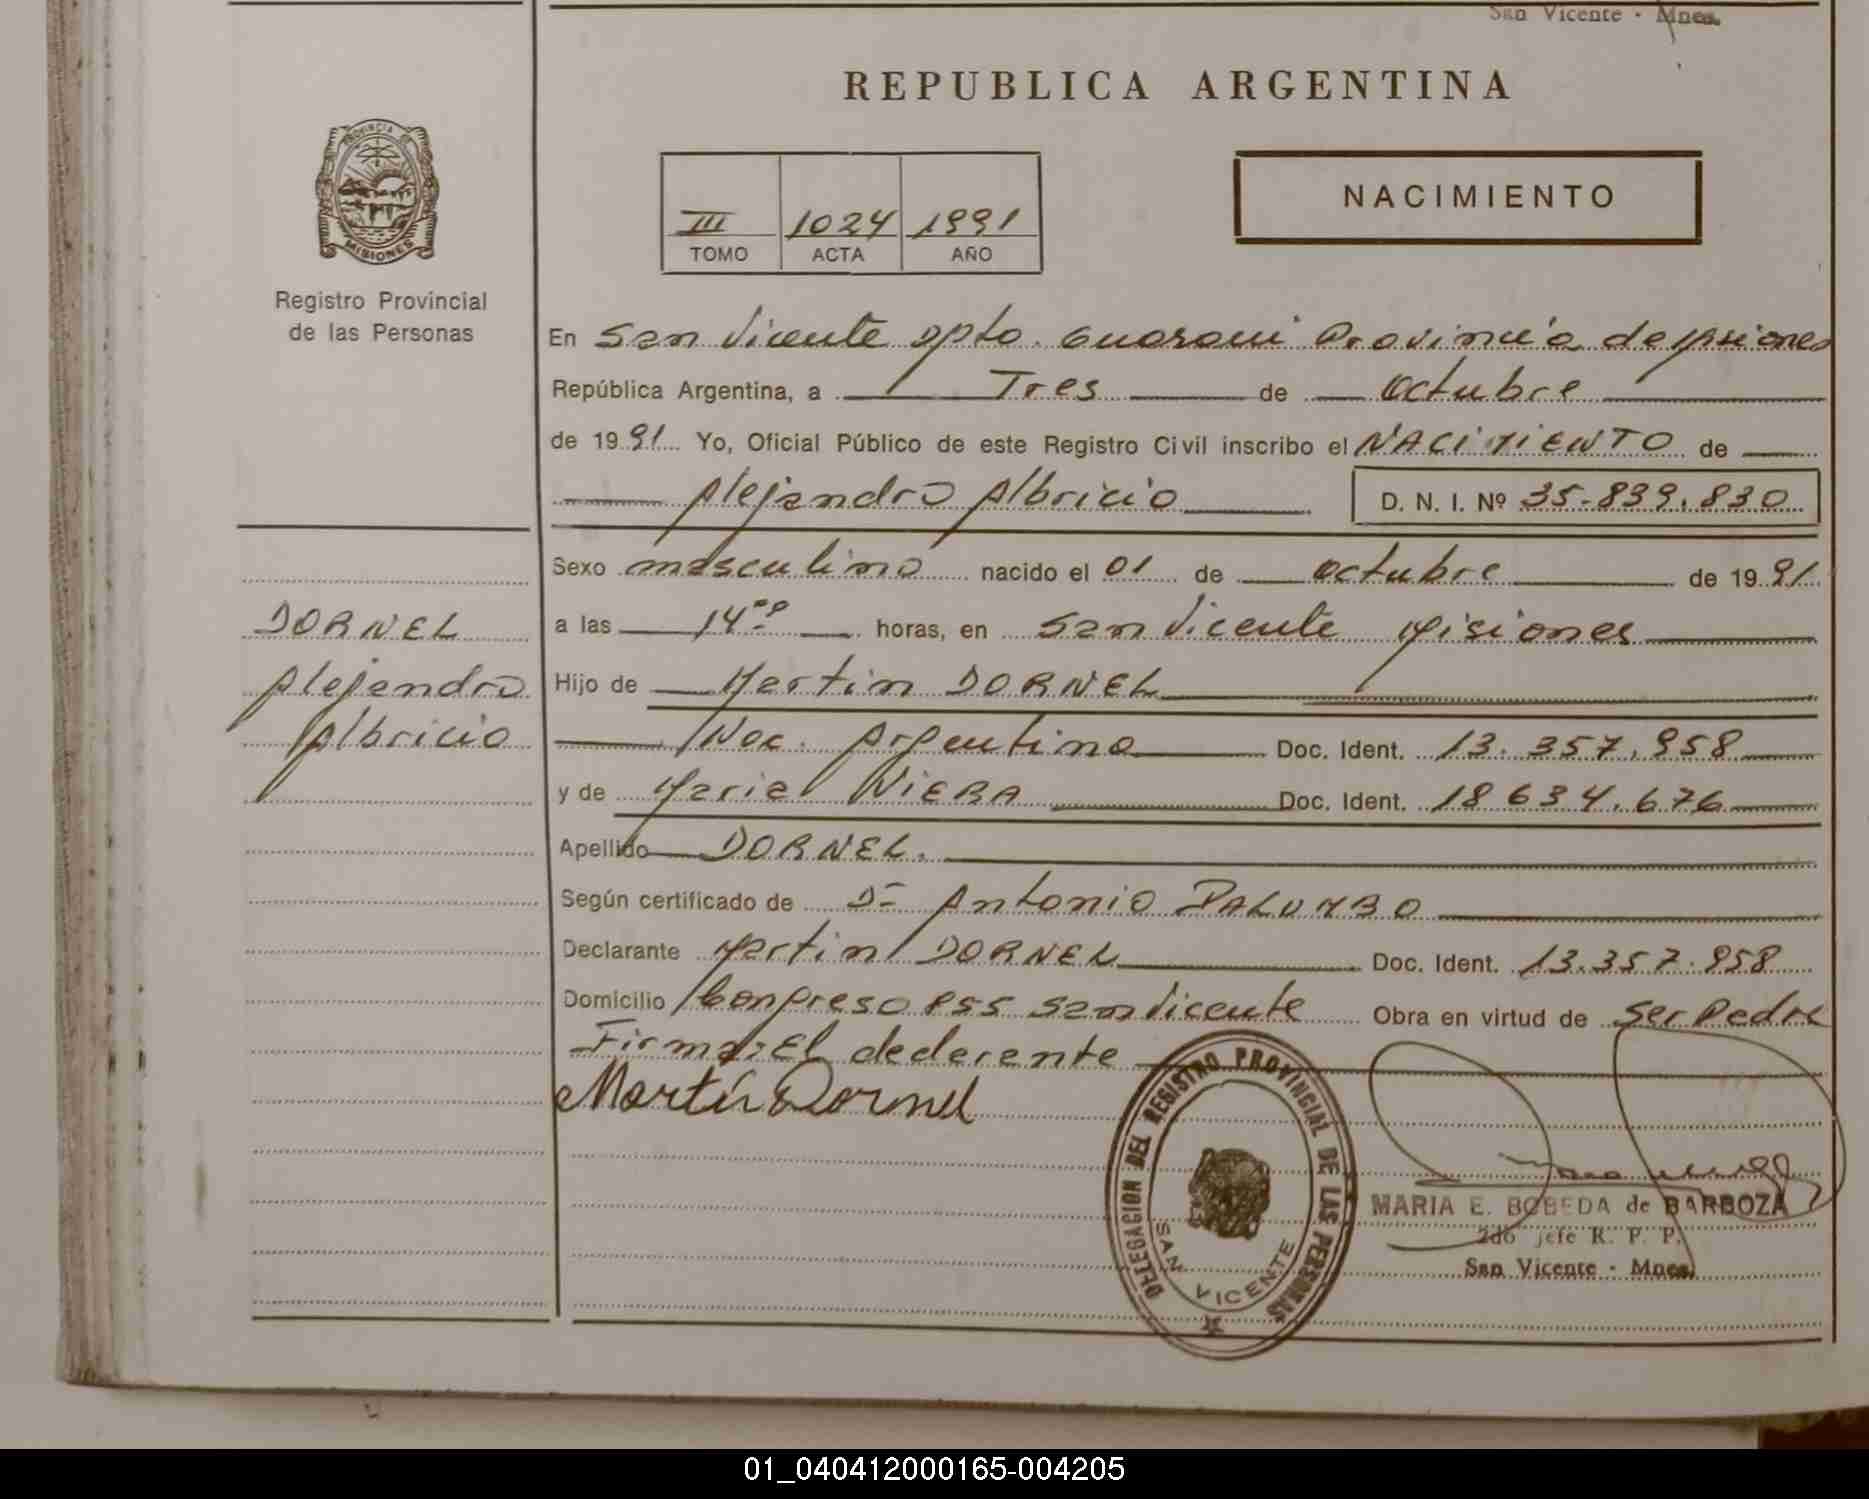 San Vicente - Mnes.
REPUBLICA ARGENTINA
PROVINCIA DE
MISIONES
Registro Provincial
de las Personas
III 1024 1991
TOMO ACTA AÑO
NACIMIENTO
En San Vicente Dpto. Guarani Provincia de Misiones
República Argentina, a Tres de octubre
de 1991 Yo, Oficial Público de este Registro Civil inscribo el NACIMIENTO de
Alejandro Albricio D. N. I. Nº 35.839.830
Sexo masculino nacido el 01 de octubre de 1991
a las 14 horas, en San Vicente Misiones
Hijo de Martin DORNEL
Nac. Argentina Doc. Ident. 13.357.958
y de Maria NIERA Doc. Ident. 18 634.676
Apellido DORNEL.
Según certificado de Dr Antonio PALUMBO
Declarante Martin DORNEL Doc. Ident. 13.357.958
Domicilio Congreso 855 San Vicente Obra en virtud de ser Padre
Firma: El declarante
Martín Dornel
DORNEL
Alejandro
Albricio
DELEGACION DEL REGISTRO PROVINCIAL DE LAS PERSONAS
SAN VICENTE
MARIA E. BOBEDA de BARBOZA
2do jefe R. P. P.
San Vicente - Mnes.
01_040412000165-004205